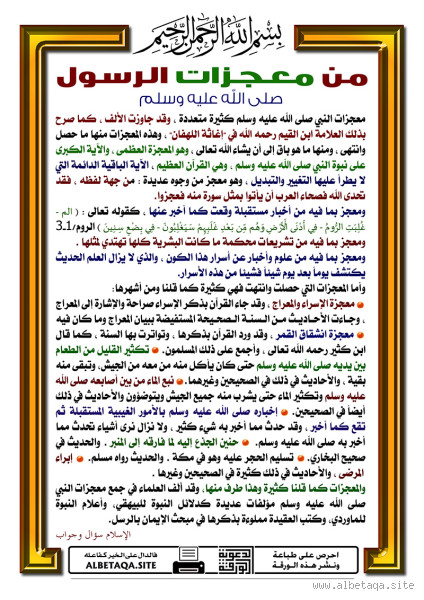 بسم الله الرحمن الرحيم
من معجزات الرسول
صلى الله عليه وسلم
معجزات النبي صلى الله عليه وسلم كثيرة متعددة ، وقد جاوزت الألف ، كما صرح
بذلك العلامة ابن القيم رحمه الله في "إغاثة اللهفان"، وهذه المعجزات منها ما حصل
وانتهى ، ومنها ما هو باق إلى أن يشاء الله تعالى ، وهو المعجزة العظمى ، والآية الكبرى
على نبوة النبي صلى الله عليه وسلم ، وهي القرآن العظيم ، الآية الباقية الدائمة التي
لا يطرأ عليها التغيير والتبديل ، وهو معجز من وجوه عديدة : من جهة لفظه ، فقد
تحدى الله فصحاء العرب أن يأتوا بمثل سورة منه فعجزوا.
ومعجز بما فيه من أخبار مستقبلة وقعت كما أخبر عنها ، كقوله تعالى : ( الم -
غُلِبَتِ الرُّومُ - فِي أَدْنَى الْأَرْضِ وَهُم مِّن بَعْدِ غَلَبِهِمْ سَيَغْلِبُونَ - فِي بِضْعِ سِنِينَ ) الروم/3.1
ومعجز بما فيه من تشريعات محكمة ما كانت البشرية كلها تهتدي لمثلها .
ومعجز بما فيه من علوم وأخبار عن أسرار هذا الكون ، والذي لا يزال العلم الحديث
يكتشف يوماً بعد يوم شيئاً فشيئا من هذه الأسرار.
وأما المعجزات التي حصلت وانتهت فهي كثيرة كما قلنا ومن أشهرها:
معجزة الإسراء والمعراج ، وقد جاء القرآن بذكر الإسراء صراحة والإشارة إلى المعراج
، وجاءت الأحاديث من السنة الصحيحة المستفيضة ببيان المعراج وما كان فيه
معجزة انشقاق القمر . وقد ورد القرآن بذكرها ، وتواترت بها السنة ، كما قال
ابن كثير رحمه الله تعالى ، وأجمع على ذلك المسلمون. تكثير القليل من الطعام
بين يديه صلى الله عليه وسلم حتى كان يأكل منه من معه من الجيش، وتبقى منه
بقية ، والأحاديث في ذلك في الصحيحين وغيرهما. نبع الماء من بين أصابعه صلى الله
عليه وسلم وتكثير الماء حتى يشرب منه جميع الجيش ويتوضؤون والأحاديث في ذلك
أيضاً في الصحيحين. إخباره صلى الله عليه وسلم بالأمور الغيبية المستقبلة ثم
تقع كما أخبر ، وقد حدث مما أخبر به شيء كثير ، ولا نزال نرى أشياء تحدث مما
أخبر به صلى الله عليه وسلم. حنين الجذع إليه لما فارقه إلى المنبر . والحديث في
صحيح البخاري. تسليم الحجر عليه وهو في مكة . والحديث رواه مسلم. إبراء
المرضى ، والأحاديث في ذلك كثيرة في الصحيحين وغيرها .
والمعجزات كما قلنا كثيرة وهذا طرف منها، وقد ألف العلماء في جمع معجزات النبي
صلى الله عليه وسلم مؤلفات عديدة كدلائل النبوة للبيهقي، وأعلام النبوة
للماوردي، وكتب العقيدة مملوءة بذكرها في مبحث الإيمان بالرسل.
الإسلام سؤال وجواب
احرص على طباعة
ونشر هذه الورقة
الدعوية
الورقة
فالدال على الخير كفاعله
ALBETAQA.SITE
www.albetaqa.site